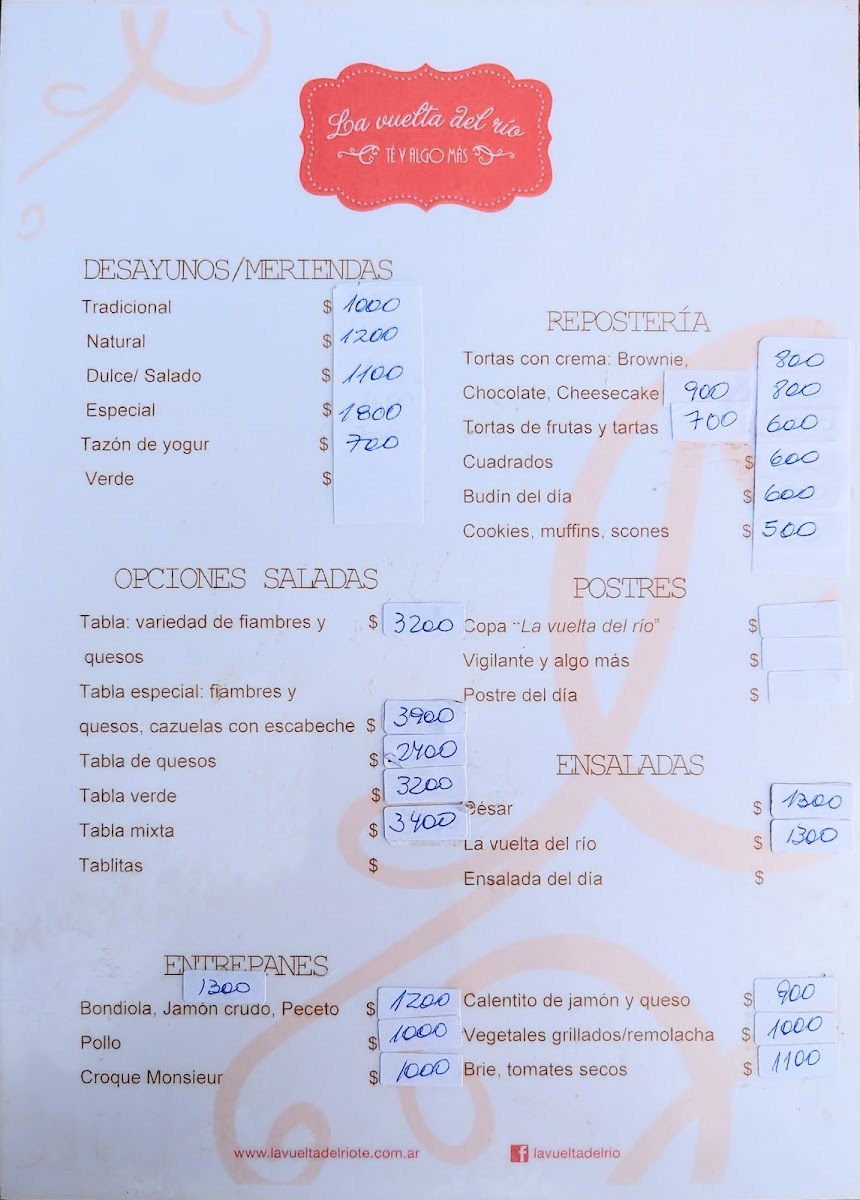 La vuelta del río
TÉ Y ALGO MÁS
DESAYUNOS/MERIENDAS
Tradicional $ 1000
Natural $ 1200
Dulce/ Salado $ 1100
Especial $ 1800
Tazón de yogur $ 700
Verde $
OPCIONES SALADAS
Tabla: variedad de fiambres y $ 3200
quesos
Tabla especial: fiambres y
quesos, cazuelas con escabeche $ 3900
Tabla de quesos $ 2400
Tabla verde $ 3200
Tabla mixta $ 3400
Tablitas $
REPOSTERÍA
Tortas con crema: Brownie, 800
Chocolate, Cheesecake 900 800
Tortas de frutas y tartas 700 600
Cuadrados $ 600
Budín del día $ 600
Cookies, muffins, scones $ 500
POSTRES
Copa "La vuelta del río" $
Vigilante y algo más $
Postre del día $
ENSALADAS
César $ 1300
La vuelta del río $ 1300
Ensalada del día $
ENTREPANES
1300
Bondiola, Jamón crudo, Peceto $ 1200
Pollo $ 1000
Croque Monsieur $ 1000
Calentito de jamón y queso $ 900
Vegetales grillados/remolacha $ 1000
Brie, tomates secos $ 1100
www.lavueltadelriote.com.ar
f lavueltadelrio